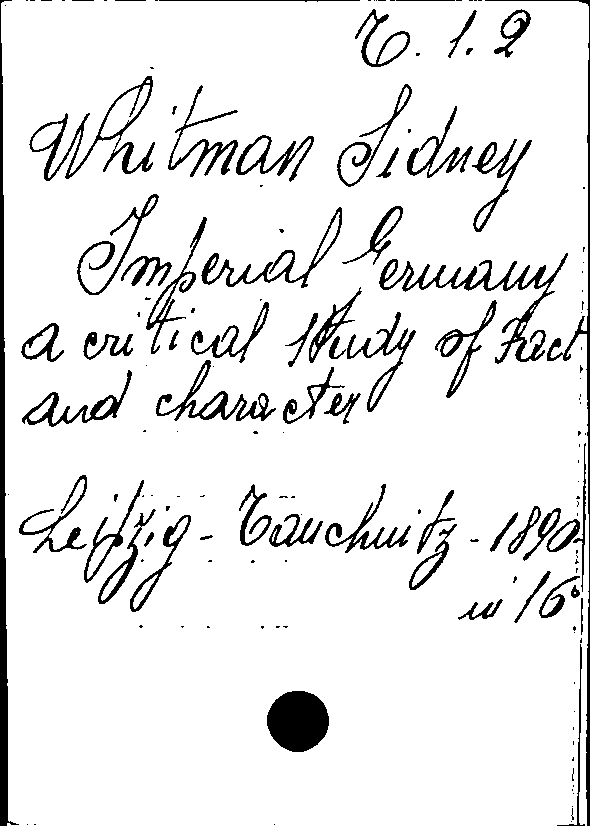 T. 1. 2
Whitman Sidney
Imperial Germany
a critical study of Fact
and character
Leipzig - Tauchnitz - 1890
in 16°